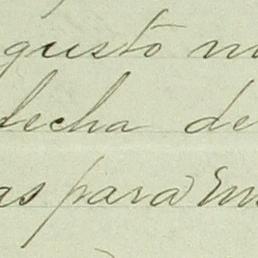 gusto m
fecha de
as para Em